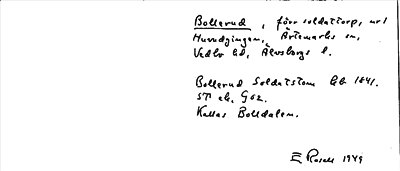 Bollerud, förr soldattorp, u.
Huvudgingen, Ärtemarks sn,
Vedbo hd, Älvsborgs l.
Bollerud Soldatstom Gb 1841.
ST ek. G02.
Kallas Bolldalen.
E Rosell 1949